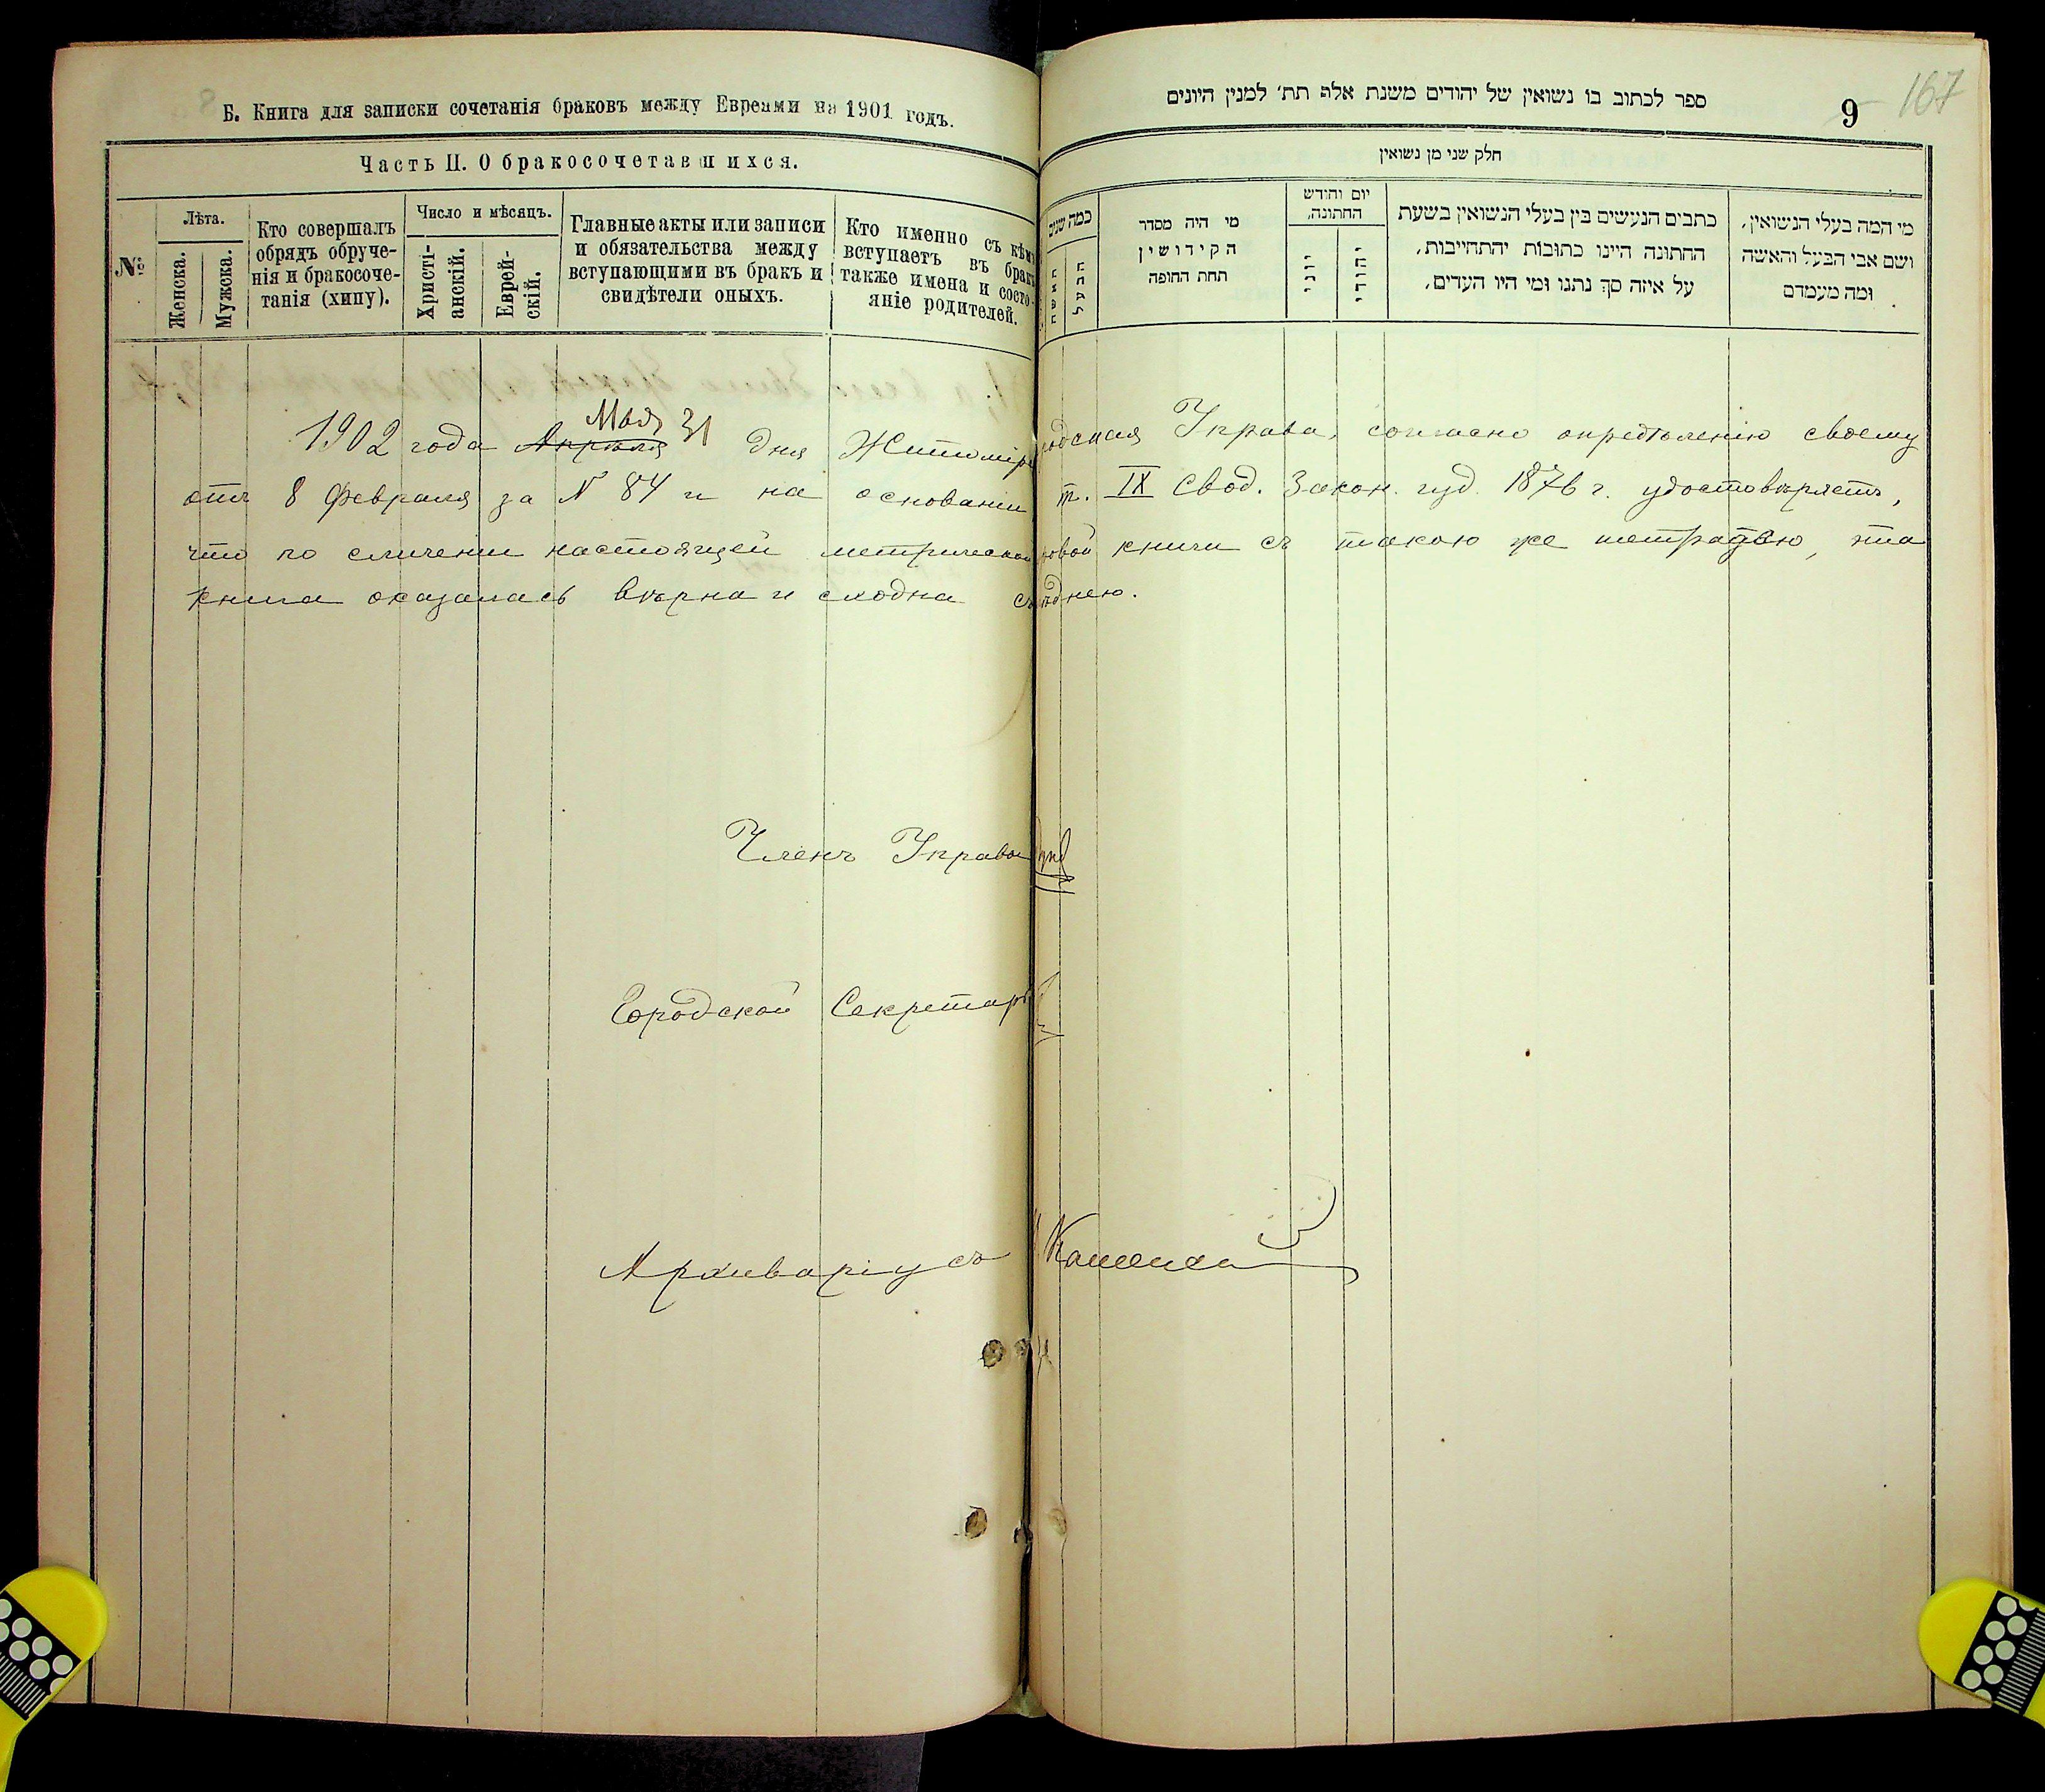 Б. Книга для записки сочетанія браковъ между Евреями на 1901 годъ.
Часть II. О бракосочетавшихся.
№
Лѣта.
Женска.
Мужска.
Кто совершалъ
обрядъ обруче-
нія и бракосоче-
танія (хипу).
Число и мѣсяцъ.
Христі-
анскій.
Еврей-
скій.
Главные акты или записи
и обязательства между
вступающими въ бракъ и
свидѣтели оныхъ.
Кто именно съ кѣмъ
вступаетъ въ бракъ
также имена и состо-
яніе родителей.
ספר לכתוב בו נשואין של יהודים משנת אלף תת׳ למנין היונים
9
167
חלק שני מן נשואין
כמה שנים
האשה
הבעל
מי היה מסדר
הקידושין
תחת החופה
יום וחודש
החתונה,
יוני
יהודי
כתבים הנעשים בין בעלי הנשואין בשעת
החתונה היינו כתובות יהתחייבות,
על איזה סך נתנו ומי היו העדים,
מי המה בעלי הנשואין,
ושם אבי הבעל והאשה
ומה מעמדם
Мая
1902 года Апрѣля 31 дня Житомір родская Управа, согласно опредѣленію своему
отъ 8 Февраля за N 84 и на основаніи т. IX Свод. Закон. изд. 1876 г. удостовѣряетъ,
что по сличеніи настоящей метрической книги съ такою же тетрадью, эта
книга оказалась вѣрна и сходна съ
Членъ Управы
Городской Секретарь
Архиваріусъ